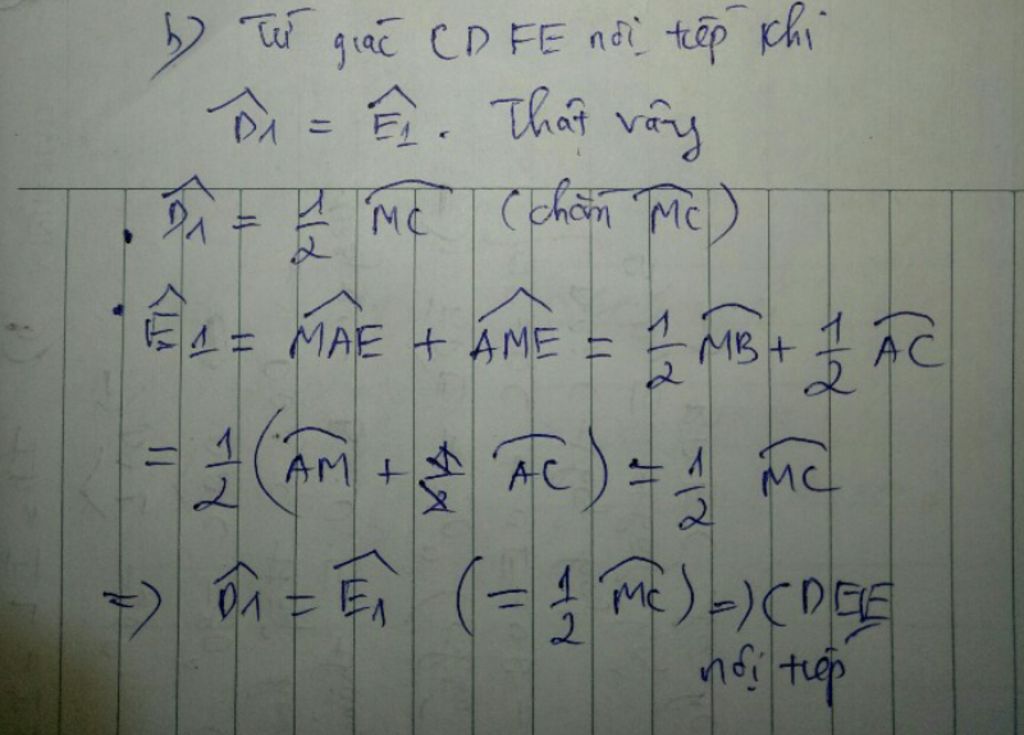 b) Tứ giác CDFE nội tiếp khi
D̂1 = Ê1. Thật vậy
• D̂1 = 1/2 M͡C (chắn M͡C)
• Ê1 = M͡AE + A͡ME = 1/2 M͡B + 1/2 A͡C
= 1/2 (A͡M + A͡C) = 1/2 M͡C
=> D̂1 = Ê1 (= 1/2 M͡C) => CDFE
nội tiếp